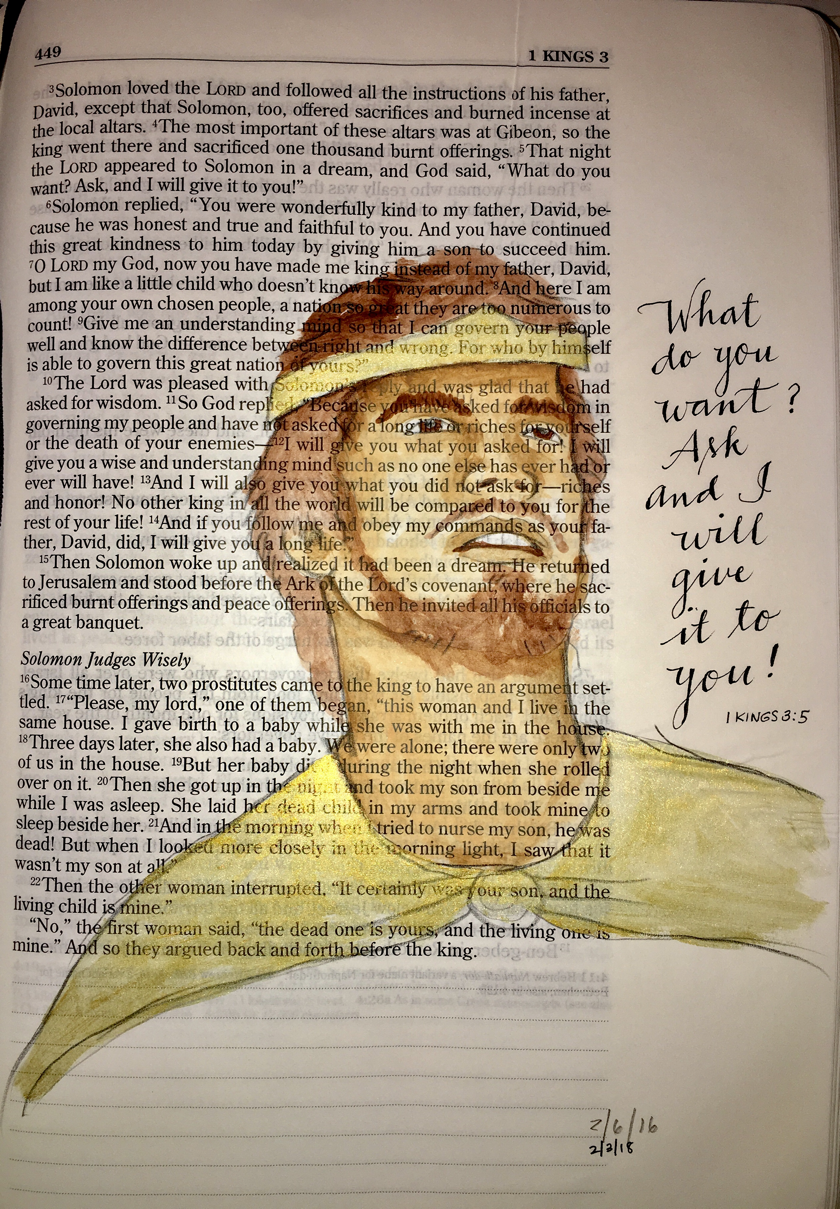 449
1 KINGS 3
³Solomon loved the LORD and followed all the instructions of his father,
David, except that Solomon, too, offered sacrifices and burned incense at
the local altars. ⁴The most important of these altars was at Gibeon, so the
king went there and sacrificed one thousand burnt offerings. ⁵That night
the LORD appeared to Solomon in a dream, and God said, “What do you
want? Ask, and I will give it to you!”
⁶Solomon replied, “You were wonderfully kind to my father, David, be-
cause he was honest and true and faithful to you. And you have continued
this great kindness to him today by giving him a son to succeed him.
⁷O LORD my God, now you have made me king instead of my father, David,
but I am like a little child who doesn’t know his way around. ⁸And here I am
among your own chosen people, a nation so great they are too numerous to
count! ⁹Give me an understanding mind so that I can govern your people
well and know the difference between right and wrong. For who by himself
is able to govern this great nation of yours?”
¹⁰The Lord was pleased with Solomon’s reply and was glad that he had
asked for wisdom. ¹¹So God replied, “Because you have asked for wisdom in
governing my people and have not asked for a long life or riches for yourself
or the death of your enemies—¹²I will give you what you asked for! I will
give you a wise and understanding mind such as no one else has ever had or
ever will have! ¹³And I will also give you what you did not ask for—riches
and honor! No other king in all the world will be compared to you for the
rest of your life! ¹⁴And if you follow me and obey my commands as your fa-
ther, David, did, I will give you a long life.”
¹⁵Then Solomon woke up and realized it had been a dream. He returned
to Jerusalem and stood before the Ark of the Lord’s covenant, where he sac-
rificed burnt offerings and peace offerings. Then he invited all his officials to
a great banquet.
Solomon Judges Wisely
¹⁶Some time later, two prostitutes came to the king to have an argument set-
tled. ¹⁷“Please, my lord,” one of them began, “this woman and I live in the
same house. I gave birth to a baby while she was with me in the house.
¹⁸Three days later, she also had a baby. We were alone; there were only two
of us in the house. ¹⁹But her baby died during the night when she rolled
over on it. ²⁰Then she got up in the night and took my son from beside me
while I was asleep. She laid her dead child in my arms and took mine to
sleep beside her. ²¹And in the morning when I tried to nurse my son, he was
dead! But when I looked more closely in the morning light, I saw that it
wasn’t my son at all.”
²²Then the other woman interrupted, “It certainly was your son, and the
living child is mine.”
“No,” the first woman said, “the dead one is yours, and the living one is
mine.” And so they argued back and forth before the king.
What
do you
want?
Ask
and I
will
give
it to
you!
1 KINGS 3:5
2/6/16
2/2/18